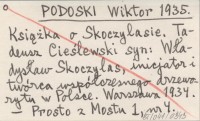 PODOSKI Wiktor 1935.
Książka o Skoczylasie. Ta-
deusz Cieślewski syn: Wła-
dysław Skoczylas, inicjator i
twórca współczesnego drzewo-
rytu w Polsce. Warszawa 1934.
Prosto z Mostu 1. nr 4.